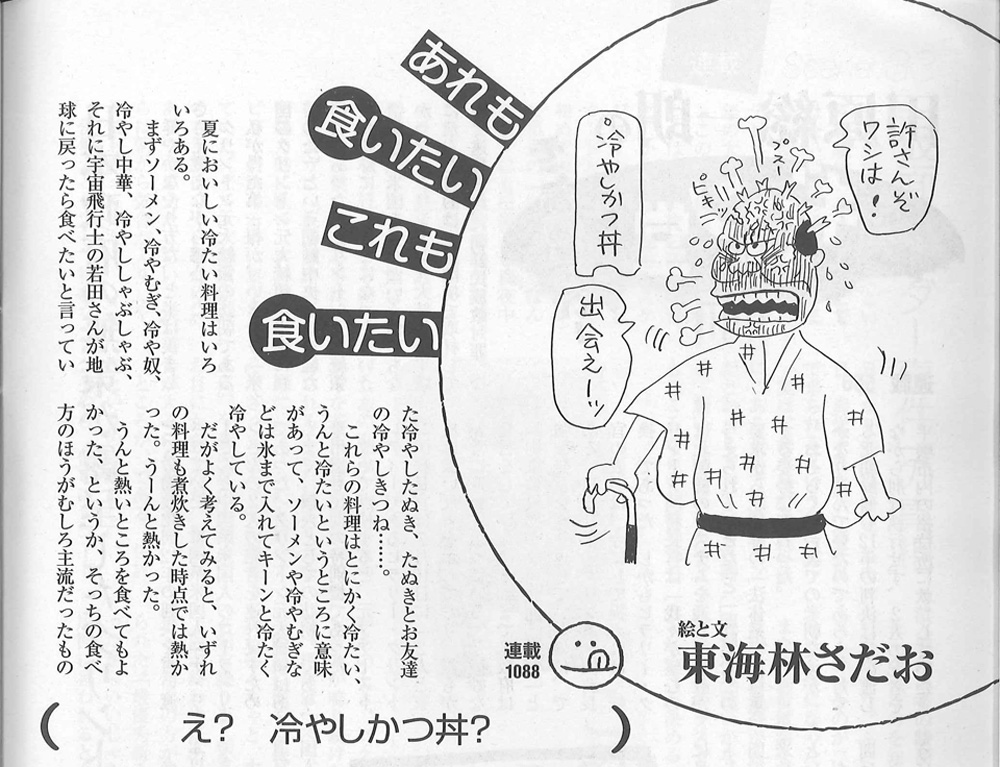 あれも
食いたい
これも
食いたい
許さんぞ
ワシは！
プスー
ピキッ
冷やしかつ丼
出会えーッ
絵と文
東海林さだお
連載
1088
え？　冷やしかつ丼？
　夏においしい冷たい料理はいろ
いろある。
　まずソーメン、冷やむぎ、冷や奴、
冷やし中華、冷やししゃぶしゃぶ、
それに宇宙飛行士の若田さんが地
球に戻ったら食べたいと言ってい
た冷やしたぬき、たぬきとお友達
の冷やしきつね……。
　これらの料理はとにかく冷たい、
うんと冷たいというところに意味
があって、ソーメンや冷やむぎな
どは氷まで入れてキーンと冷たく
冷やしている。
　だがよく考えてみると、いずれ
の料理も煮炊きした時点では熱か
った。うーんと熱かった。
　うんと熱いところを食べてもよ
かった、というか、そっちの食べ
方のほうがむしろ主流だったもの